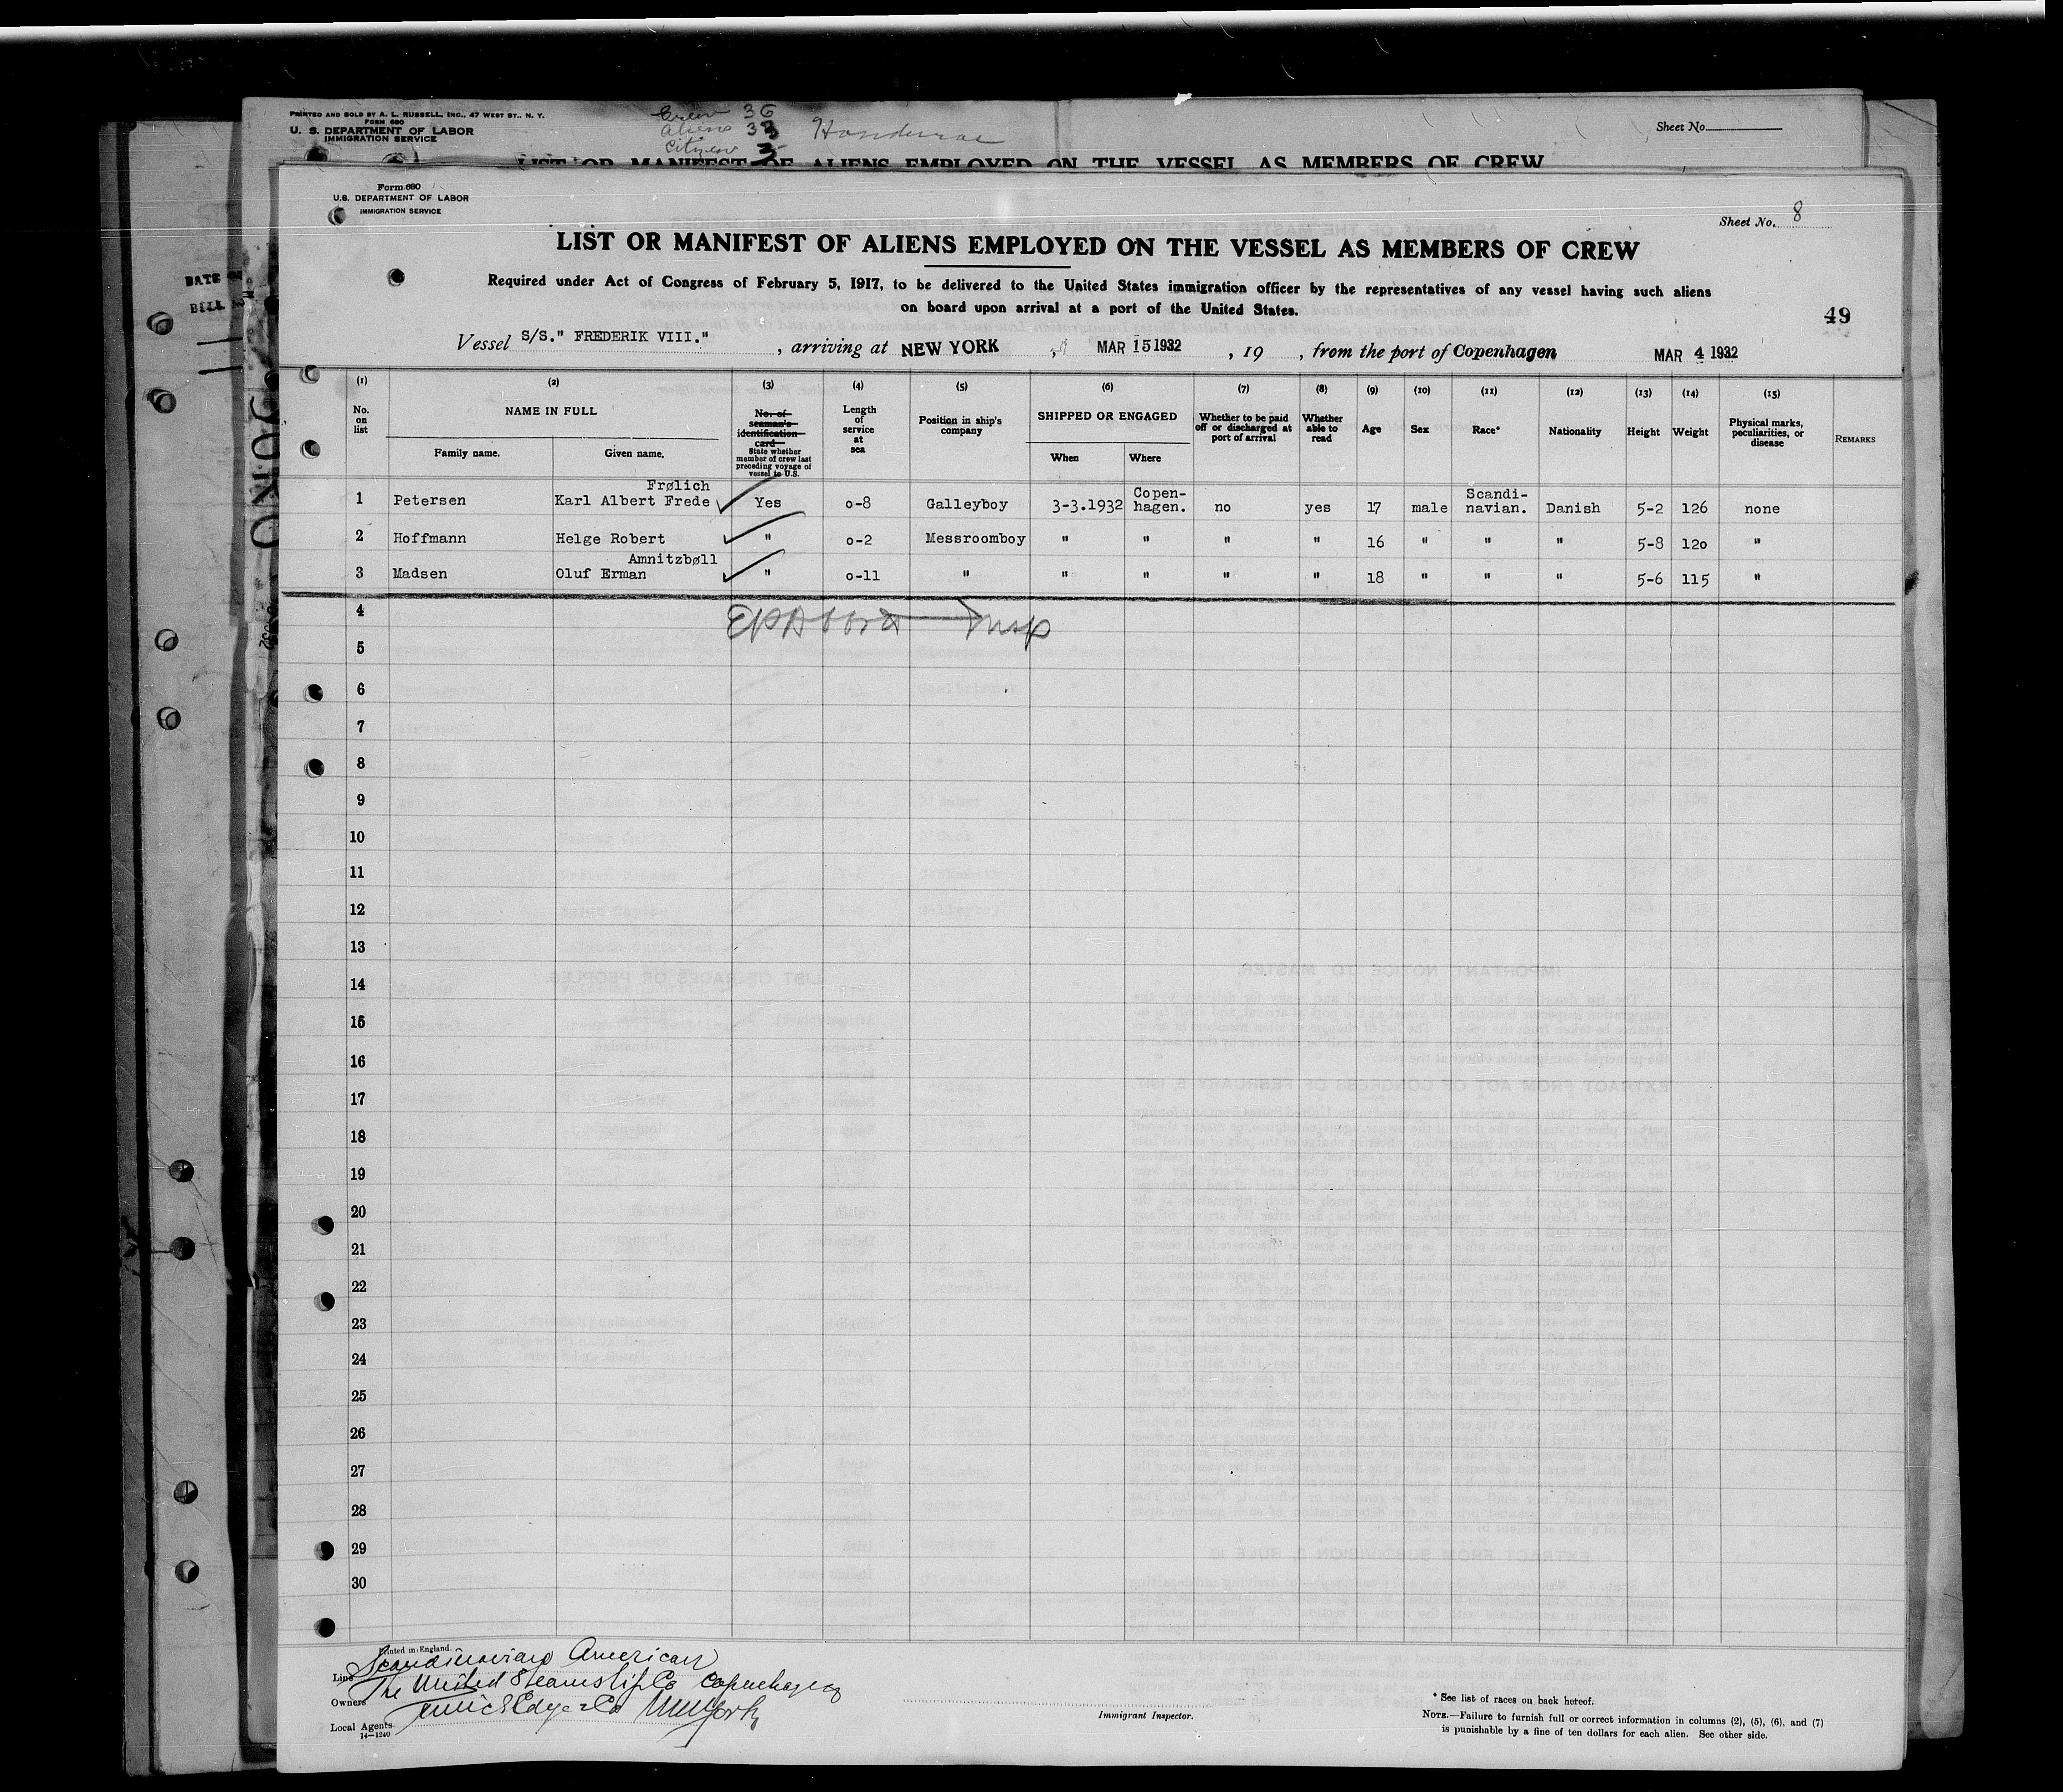 PRINTED AND SOLD BY A. L. RUSSELL, INC., 47 WEST ST., N. Y.
FORM 680
U. S. DEPARTMENT OF LABOR
IMMIGRATION SERVICE
Crew 36
Aliens 33
Citizen 3
Honduras
Sheet No.
LIST OR MANIFEST OF ALIENS EMPLOYED ON THE VESSEL AS MEMBERS OF CREW
Form 680
U.S. DEPARTMENT OF LABOR
IMMIGRATION SERVICE
Sheet No. 8
LIST OR MANIFEST OF ALIENS EMPLOYED ON THE VESSEL AS MEMBERS OF CREW
Required under Act of Congress of February 5, 1917, to be delivered to the United States immigration officer by the representatives of any vessel having such aliens
on board upon arrival at a port of the United States.
49
Vessel S/S." FREDERIK VIII." , arriving at NEW YORK , MAR 15 1932 , 19 , from the port of Copenhagen MAR 4 1932
(1) (2) (3) (4) (5) (6) (7) (8) (9) (10) (11) (12) (13) (14) (15)
No. on list
NAME IN FULL
Family name. Given name.
No. of seaman's identification card
State whether member of crew last preceding voyage of vessel to U.S.
Length of service at sea
Position in ship's company
SHIPPED OR ENGAGED
When Where
Whether to be paid off or discharged at port of arrival
Whether able to read
Age
Sex
Race*
Nationality
Height
Weight
Physical marks, peculiarities, or disease
REMARKS
Frølich
1 Petersen Karl Albert Frede Yes 0-8 Galleyboy 3-3.1932 Copen-hagen. no yes 17 male Scandi-navian. Danish 5-2 126 none
2 Hoffmann Helge Robert " 0-2 Messroomboy " " " " 16 " " " 5-8 120 "
Amnitzbøll
3 Madsen Oluf Erman " 0-11 " " " " " 18 " " " 5-6 115 "
4
5
6
7
8
9
10
11
12
13
14
15
16
17
18
19
20
21
22
23
24
25
26
27
28
29
30
Printed in England.
Line Scandinavian American
Owners The United Steamship Co Copenhagen
Local Agents New York
14—1240
Immigrant Inspector.
* See list of races on back hereof.
NOTE.—Failure to furnish full or correct information in columns (2), (5), (6), and (7)
is punishable by a fine of ten dollars for each alien. See other side.